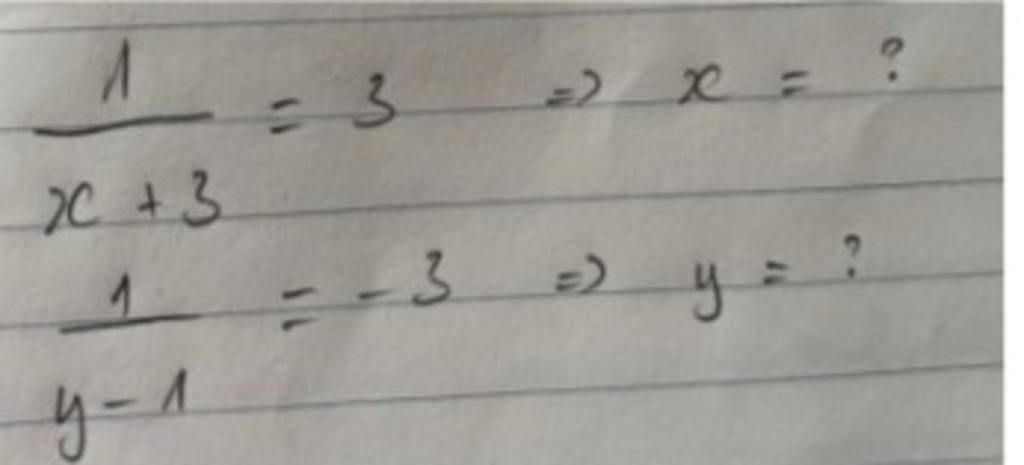 1/(x + 3) = 3 => x = ?
1/(y - 1) = - 3 => y = ?